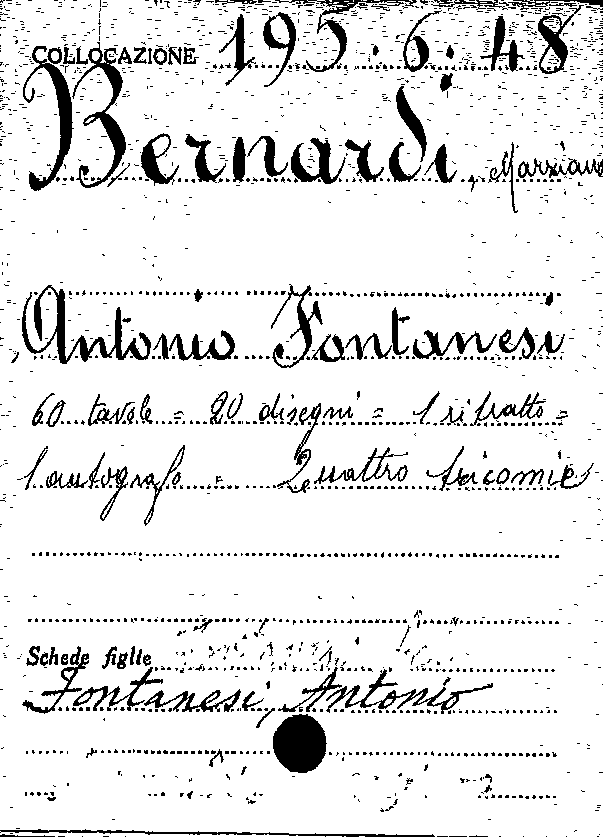 COLLOCAZIONE 195.6.48
Bernardi, Marziano
Antonio Fontanesi
60 tavole = 20 disegni = 1 ritratto =
1 autografo = Quattro tricomie
Schede figlie
Fontanesi, Antonio